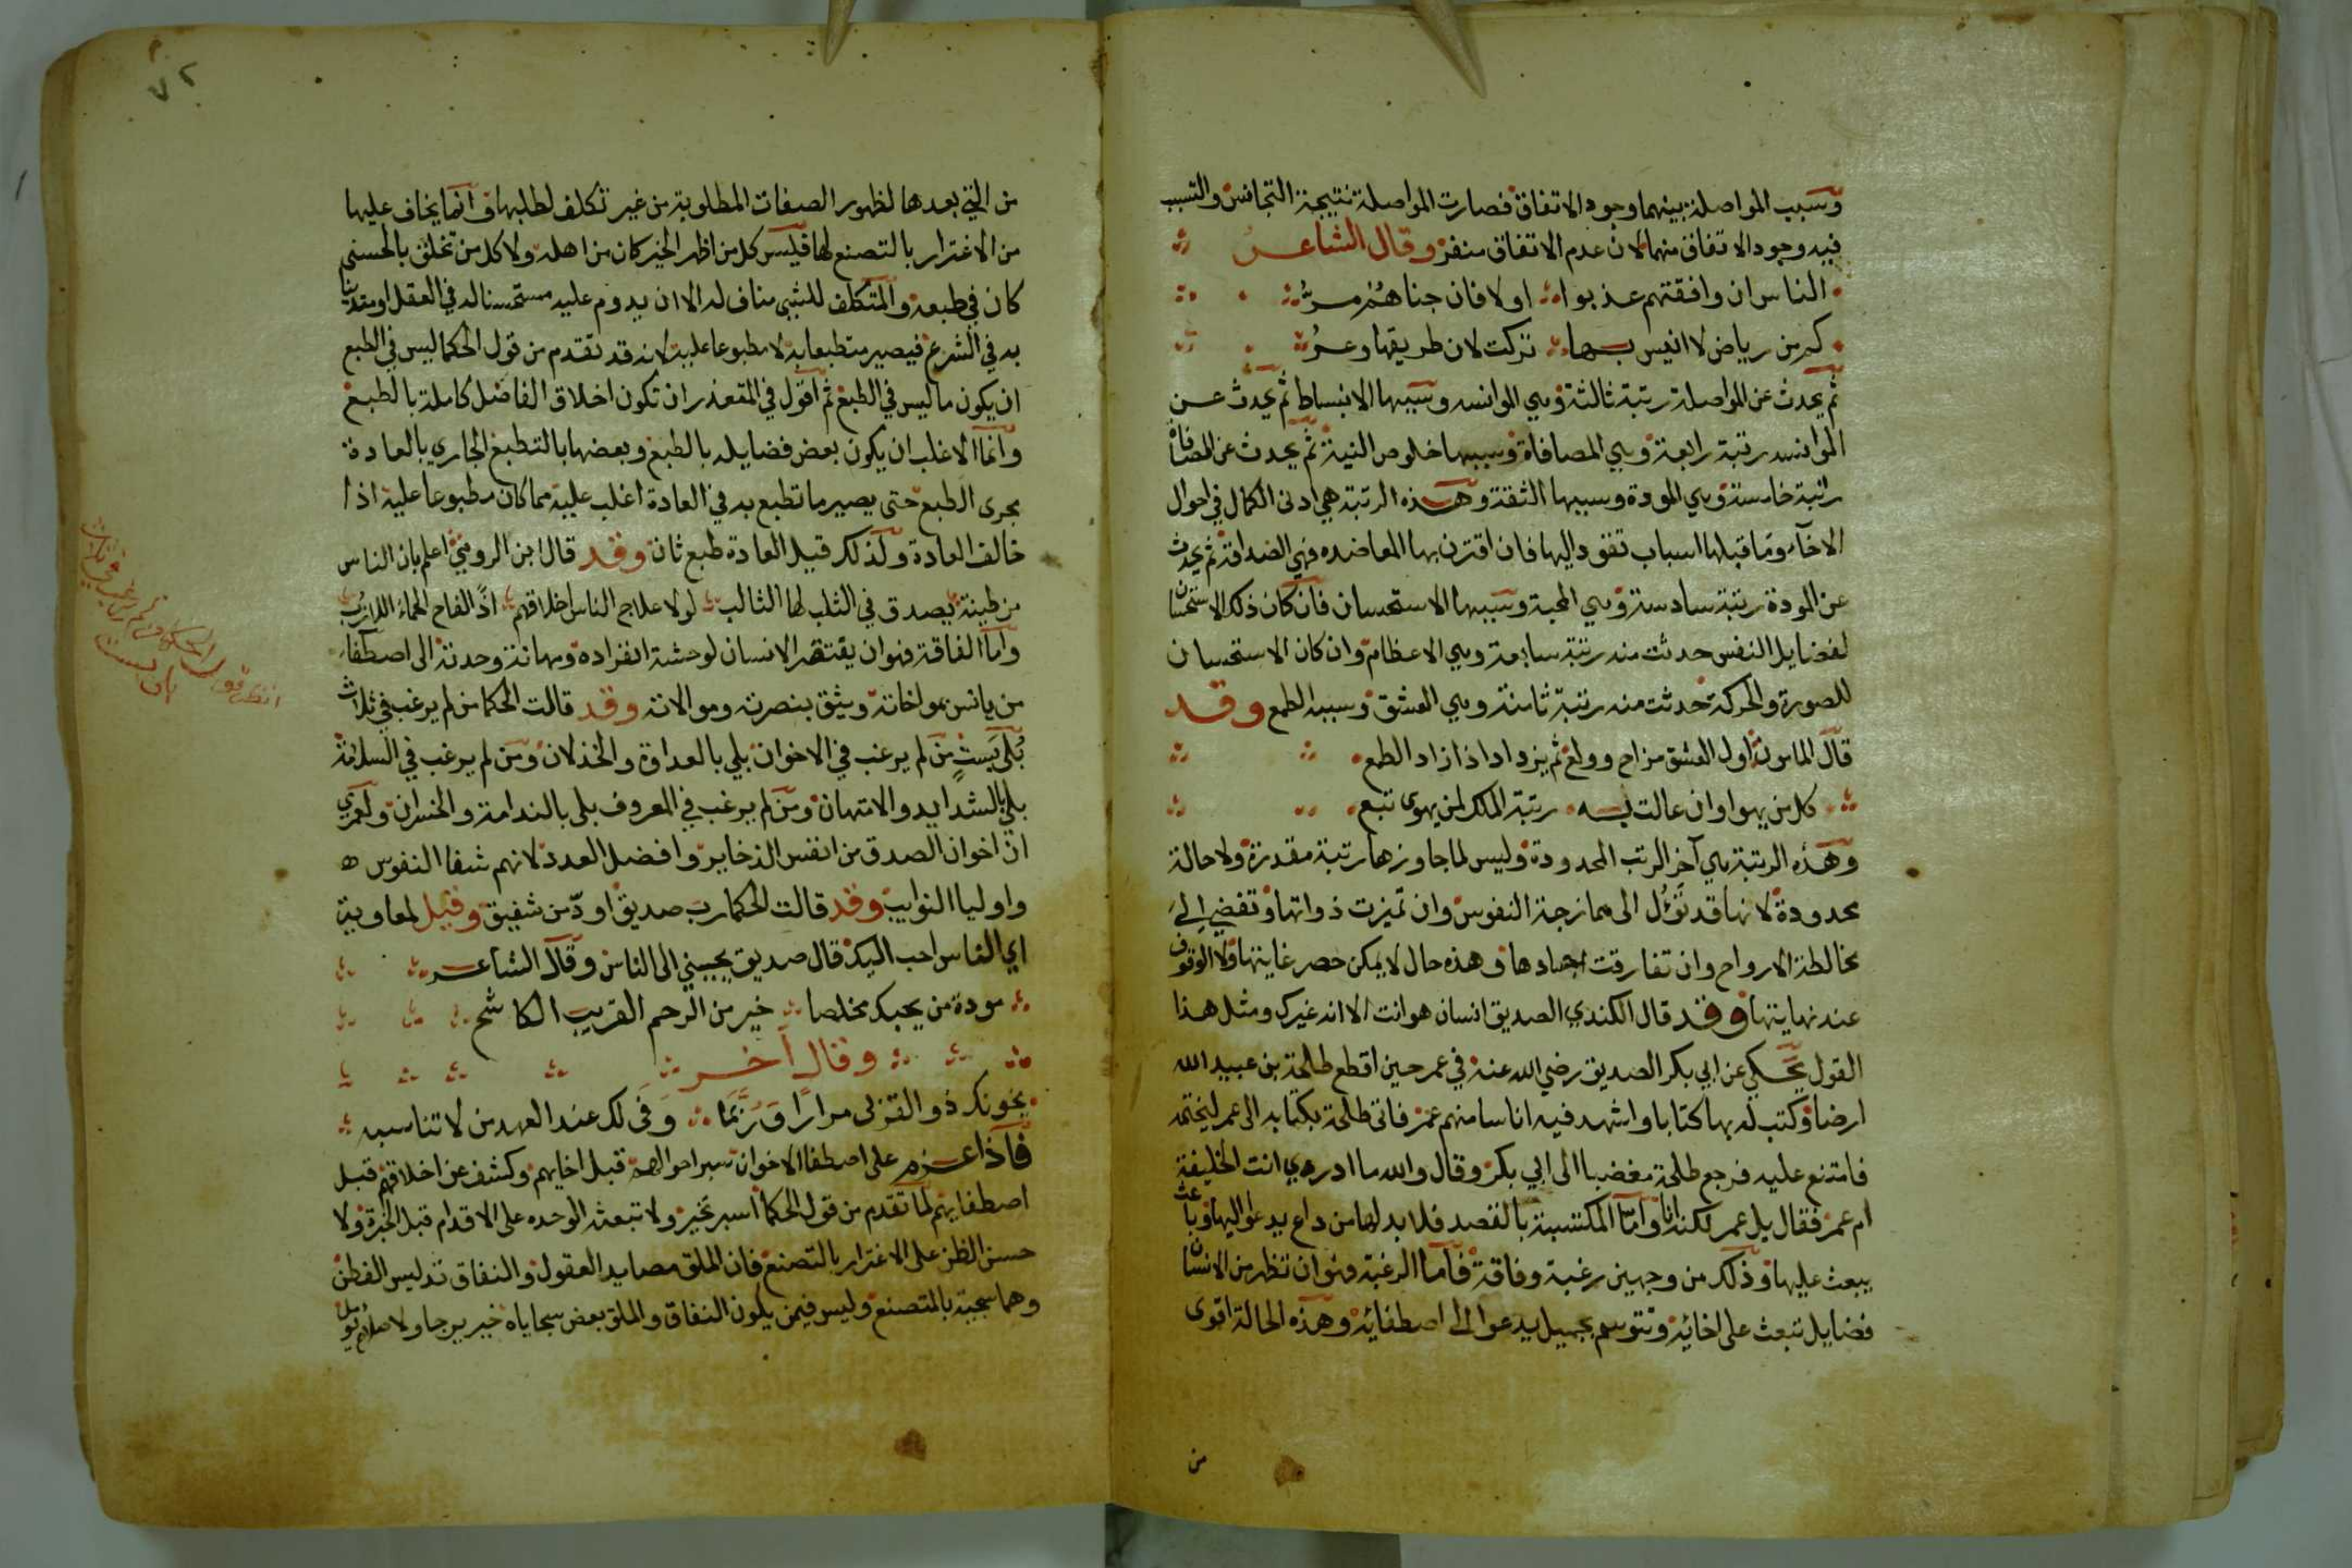 وسبب المواصلة بينهما وجود الاتفاق فصارت المواصلة نتيجة التجانس والسبب
فيه وجود الاتفاق منهما لان عدم الاتفاق منفر وقال الشاعر
الناس ان وافقتهم عذبوا اولا فان جناهم مر
كم من رياض لا انيس بها تركت لان طريقها وعر
ثم يحدث عن المواصلة رتبة ثالثة وهي الموانسه وسببها الانبساط ثم يحدث عن
الموانسه رتبة رابعة وهي المصافاة وسببها خلوص النية ثم يحدث عن المصافاة
رتبة خامسة وهي المودة وسببها الثقة وهذه الرتبة هي ادنى الكمال في احوال
الاخآء وما قبلها اسباب تقود اليها فان اقترن بها المعاضده فهي الصداقة ثم يحدث
عن المودة رتبة سادسة وهي المحبة وسببها الاستحسان فان كان ذلك الاستحسان
لفضايل النفس حدثت منه رتبة سابعة وهي الاعظام وان كان الاستحسان
للصورة والحركة حدثت منه رتبة ثامنة وهي العشق وسببه الطمع وقد
قال المامون اول العشق مزاح وولع ثم يزداد اذا زاد الطمع
كل من يهوا وان عالت به رتبة الملك لمن يهوى تبع
وهذه الرتبة هي آخر الرتب المحدودة وليس لما جاوزها رتبة مقدرة ولا حالة
محدودة لانها قد تؤل الى ممازجة النفوس وان تميزت ذواتها وتفضي الى
مخالطة الارواح وان تفارقت اجسادها وهذه حال لا يمكن حصر غايتها ولا الوقوف
عند نهايتها وقد قال الكندي الصديق انسان هو انت الا انه غيرك ومثل هذا
القول يحكي عن ابي بكر الصديق رضي الله عنه في عمر حين اقطع طلحة بن عبيد الله
ارضا وكتب له بها كتابا واشهد فيه اناسا منهم عمر فاتى طلحة بكتابه الى عمر ليختمه
فامتنع عليه فرجع طلحة مغضبا الى ابي بكر وقال والله ما ادرى انت الخليفة
ام عمر فقال بل عمر لكنه انا واما المكتسبة بالقصد فلا بد لها من داع يدعو اليها وباعث
يبعث عليها وذلك من وجهين رغبة وفاقة فاما الرغبة فهو ان تظهر من الانسان
فضايل تبعث على اخائه وتتوسم بجميل يدعوا الى اصطفائه وهذه الحالة اقوى
من
٧٢
من التي بعدها لظهور الصفات المطلوبة من غير تكلف لطلبها وانما يخاف عليها
من الاغترار بالتصنع لها فليس كل من اظهر الخير كان من اهله ولا كل من تخلق بالحسنى
كان في طبعه والمتكلف للشيي مناف له الا ان يدوم عليه مستحسنا له في العقل او متدينا
به في الشرع فيصير متطبعا به لا مطبوعا عليه لانه قد تقدم من قول الحكما ليس في الطبع
ان يكون ما ليس في الطبع ثم اقول في المتعذر ان تكون اخلاق الفاضل كاملة بالطبع
وانما الاغلب ان يكون بعض فضايله بالطبع وبعضها بالتطبع الجاري بالعادة
مجرى الطبع حتى يصير ما تطبع به في العادة اغلب عليه مما كان مطبوعا عليه اذا
خالف العادة ولذلك قيل العادة طبع ثان وقد قال ابن الرومي اعلم بان الناس
من طينة يصدق في الثلب لها الثالب لولا علاج الناس اخلاقهم اذا لفاح الحماء اللازب
واما الفاقة فهو ان يفتقر الانسان لوحشة انفراده ومهانة وحدته الى اصطفاء
من يانس بمواخاته ويثق بنصرته وموالاته وقد قالت الحكما من لم يرغب في ثلاث
بلي بست من لم يرغب في الاخوان بلي بالعداوة والخذلان ومن لم يرغب في السلامة
بلي بالشدايد والامتهان ومن لم يرغب في المعروف بلي بالندامة والخسران ولعمري
ان اخوان الصدق من انفس الذخاير وافضل العدد لانهم شفا النفوس
واوليا النوايب وقد قالت الحكما رب صديق اود من شفيق وقيل لمعاوية
اي الناس احب اليك قال صديق يحببني الى الناس وقال الشاعر
مودة من يحبك مخلصا خير من الرحم القريب الكاشح
وقال آخر
يخونك ذو القربى مرارا وربما وفى لك عند العهد من لا تناسبه
فاذا عزم على اصطفا الاخوان سبر احوالهم قبل اخايهم وكشف عن اخلاقهم قبل
اصطفايهم لما تقدم من قول الحكما اسبر تخبر ولا تبعثه الوحده على الاقدام قبل الخبرة ولا
حسن الظن على الاغترار بالتصنع فان الملق مصايد العقول والنفاق تدليس الفطن
وهما سجية بالمتصنع وليس فيمن يكون النفاق والملق بعض سجاياه خير يرجا ولا صلاح يومل
انظر قول الحكما من لم يرغب في ثلاث
بلي بست